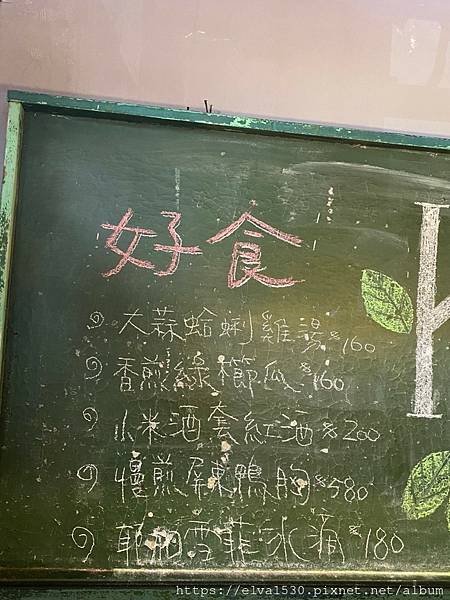 好食
大蒜蛤蜊雞湯 $160
香煎綠櫛瓜 $160
小米酒套紅酒 $200
慢煎鴨胸 $580
耶加雪菲冰滴 $180
https://elva1530.pixnet.net/album